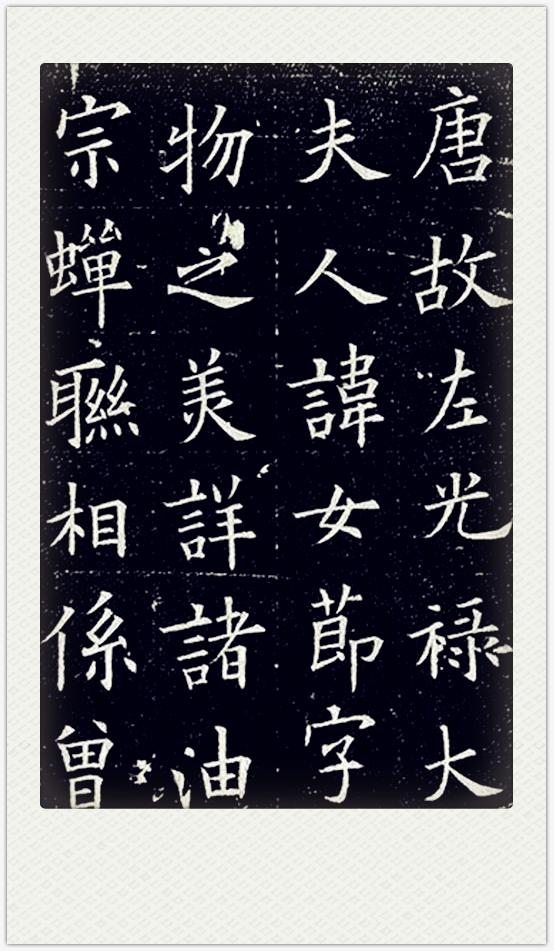 唐故左光禄大
夫人諱女莭字
物之美詳諸油
宗蟬聮相係曽